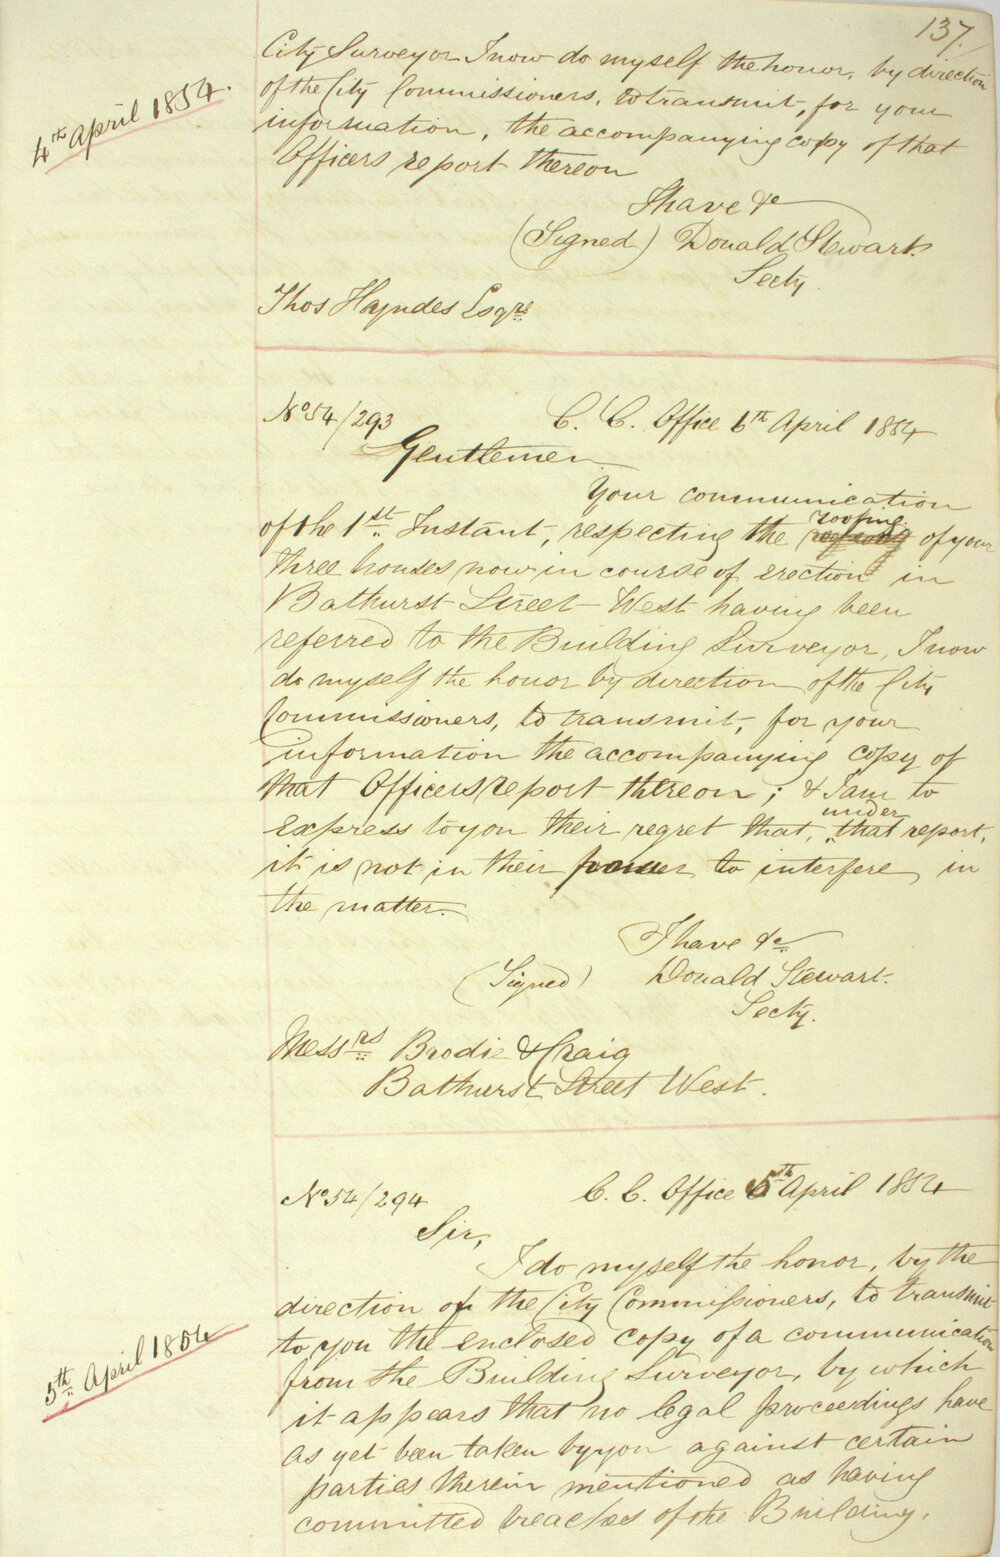 137.
City Surveyor I now do myself the honor, by direction
of the City Commissioners, to transmit, for your
4th April 1854.
information, the accompanying copy of that
Officers report thereon
I have &c
(Signed) Donald Stewart
Secty.
Thos Hayndes Esqre
No 54/293
C. C. Office 6th April 1854
Gentlemen
Your communication
of the 1st Instant, respecting the roofing of your
three houses now in course of erection in
Bathurst Street West having been
referred to the Building Surveyor, I now
do myself the honor by direction of the City
Commissioners, to transmit, for your
information the accompanying copy of
that Officers report thereon; & I am to
express to you their regret that, under that report,
it is not in their power to interfere in
the matter.
I have &c
(Signed) Donald Stewart.
Secty.
Messrs Brodie & Craig
Bathurst Street West.
No 54/294
C. C. Office 5th April 1854
Sir,
I do myself the honor, by the
direction of the City Commissioners, to transmit
to you the enclosed copy of a communication
5th April 1854
from the Building Surveyor, by which
it appears that no legal proceedings have
as yet been taken by you against certain
parties therein mentioned as having
committed breaches of the Building.